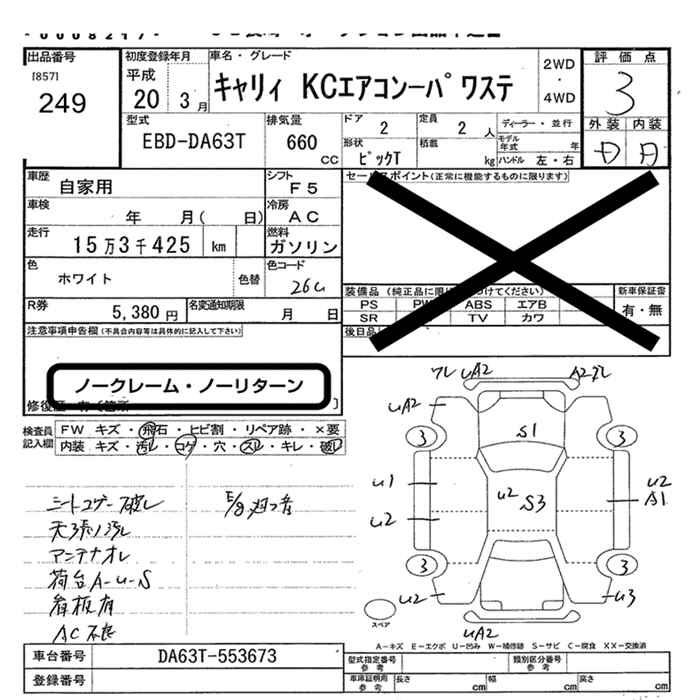 出品番号
[857]
249
初度登録年月
平成
20 3月
車名・グレード
キャリィ KCエアコン-パワステ
2WD
・
4WD
評価点
3
外装 内装
D D
型式
EBD-DA63T
排気量
660
CC
ドア
2
定員
2 人
ディーラー・並行
モデル年式 年
形状
ピックT
積載
kg
ハンドル 左・右
車歴
自家用
シフト
F5
車検
年 月( 日)
冷房
AC
走行
15万3千425 km
燃料
ガソリン
色
ホワイト
色替
色コード
26U
R券
5,380円
名変通知期限
月 日
セールスポイント(正常に機能するものに限ります)
装備品
PS
ABS エアB
SR
TV カワ
新車保証書
有・無
後日品
注意事項申告欄(不具合内容等は具体的に記入して下さい)
ノークレーム・ノーリターン
検査員記入欄
FW キズ・飛石・ヒビ割・リペア跡・×要
内装 キズ・汚レ・コゲ・穴・スレ・キレ・破レ
シートコゲ 破レ
天張り汚レ
アンテナオレ
荷台A-U-S
看板有
AC不良
E/g廻り音
ワレ UA2 A2ワレ
UA2
S1
3 3
U1
U2
U2 S3
U2
A1
3 3
U2
U3
UA2
スペア
A-キズ E-エクボ U-凹み W-補修跡 S-サビ C-腐食 XX-交換済
車台番号
DA63T-553673
登録番号
型式指定番号参考
類別区分番号参考
車庫証明用参考
長さ cm
幅 cm
高さ cm